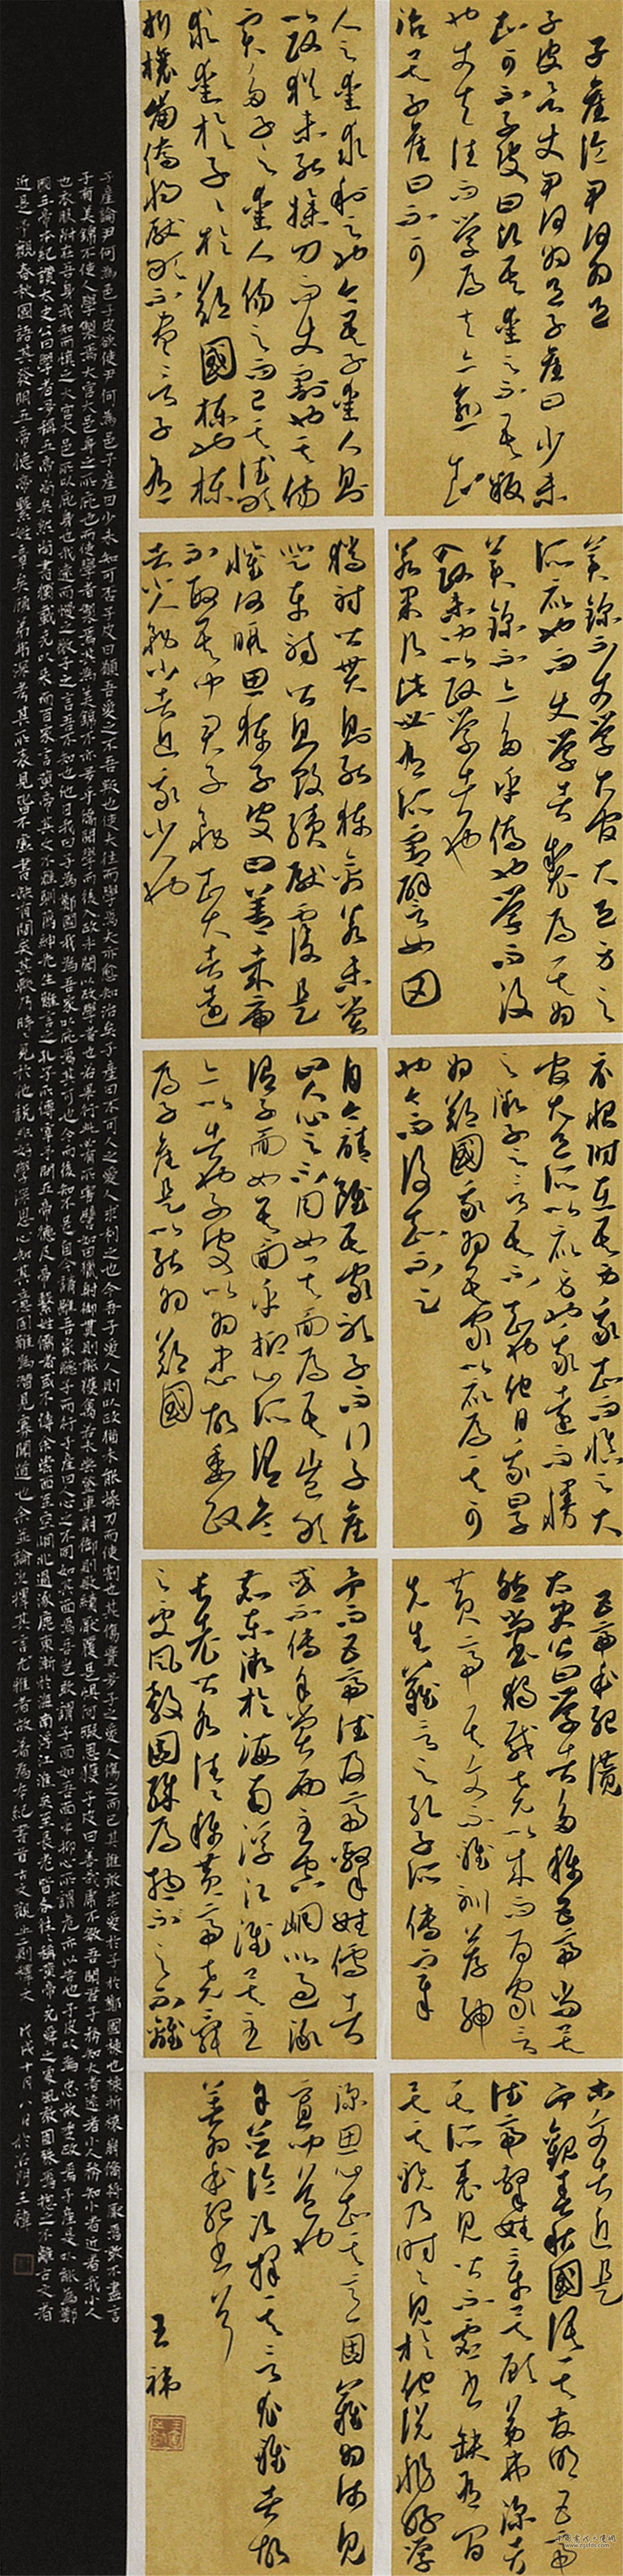 子產論尹何為邑
子皮欲使尹何為邑子產曰少未
知可否子皮曰吾愛之不吾叛
也使夫往而學焉夫亦愈知
治矣子產曰不可
人之愛人求利之也今吾子愛人則
以政猶未能操刀而使割也其傷
實多子之愛人傷之而已其誰敢
求愛於子子於鄭國棟也棟
折榱崩僑將厭焉敢不盡言子有
美錦不使學大官大邑身之
所庇也而使學者製焉其為
美錦不亦多乎僑聞學而後
入政未聞以政學者也
若果行此必有所害譬如田
獵射御貫則能獲禽若未嘗
登車射御則敗績厭覆是
懼何暇思獲子皮曰善哉虎
不敏吾聞君子務知大者遠
者小人務知小者近我小人也
衣服附在吾身我知而慎之大
官大邑所以庇身也我遠而慢
之微子之言吾不知也他日我曰子
為鄭國我為吾家以庇焉其可
也今而後知不足
自今請雖吾家聽子而行子產
曰人心之不同如其面焉吾豈敢
謂子面如吾面乎抑心所謂危
亦以告也子皮以為忠故委政
焉子產是以能為鄭國
五帝本紀讚
太史公曰學者多稱五帝尚矣
然尚書獨載堯以來而百家言
黃帝其文不雅馴薦紳
先生難言之孔子所傳宰
予問五帝德及帝繫姓儒者
或不傳余嘗西至空峒北過涿
鹿東漸於海南浮江淮矣至
長老皆各往往稱黃帝堯舜
之處風教固殊焉總之不離
古文者近是
予觀春秋國語其發明五帝
德帝繫姓章矣顧弟弗深考
其所表見皆不虛書缺有間
矣其軼乃時時見於他說非好學
深思心知其意固難為淺見
寡聞道也
余並論次擇其言尤雅者故
著為本紀書首
王禕
子產論尹何為邑子皮欲使尹何為邑子產曰少未知可否子皮曰願吾愛之不吾叛也使夫往而學焉夫亦愈知治矣子產曰不可人之愛人求利之也今吾子愛人則以政猶未能操刀而使割也其傷實多子之愛人傷之而已其誰敢求愛於子子於鄭國棟也棟折榱崩僑將厭焉敢不盡言
子有美錦不使人學製焉大官大邑身之所庇也而使學者製焉其為美錦不亦多乎僑聞學而後入政未聞以政學者也若果行此必有所害譬如田獵射御貫則能獲禽若未嘗登車射御則敗績厭覆是懼何暇思獲子皮曰善哉虎不敏吾聞君子務知大者遠者小人務知小者近者我小人
也衣服附在吾身我知而慎之大官大邑所以庇身也我遠而慢之微子之言吾不知也他日我曰子為鄭國我為吾家以庇焉其可也今而後知不足自今請雖吾家聽子而行子產曰人心之不同如其面焉吾豈敢謂子面如吾面乎抑心所謂危亦以告也子皮以為忠故委政焉子產是以能為鄭
國五帝本紀讚太史公曰學者多稱五帝尚矣然尚書獨載堯以來而百家言黃帝其文不雅馴薦紳先生難言之孔子所傳宰予問五帝德及帝繫姓儒者或不傳余嘗西至空峒北過涿鹿東漸於海南浮江淮矣至長老皆各往往稱黃帝堯舜之處風教固殊焉總之不離古文者
近是予觀春秋國語其發明五帝德帝繫姓章矣顧弟弗深考其所表見皆不虛書缺有間矣其軼乃時時見於他說非好學深思心知其意固難為淺見寡聞道也余並論次擇其言尤雅者故著為本紀書首古文觀止二則釋文 戊戌十月八日於 王禕